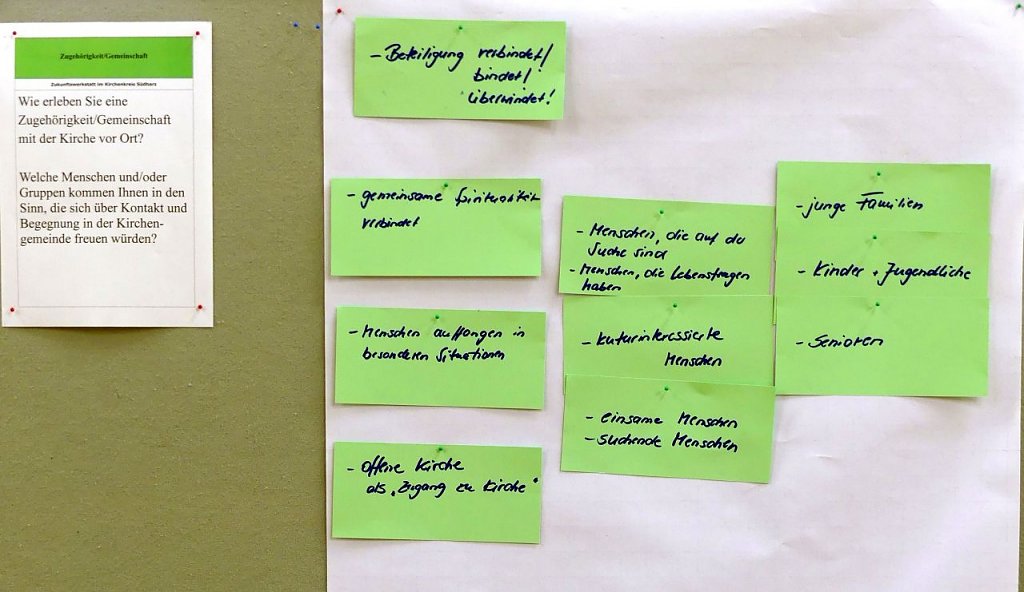 Zugehörigkeit/Gemeinschaft
Zukunftswerkstatt im Kirchenkreis Südharz
Wie erleben Sie eine
Zugehörigkeit/Gemeinschaft
mit der Kirche vor Ort?
Welche Menschen und/oder
Gruppen kommen Ihnen in den
Sinn, die sich über Kontakt und
Begegnung in der Kirchen-
gemeinde freuen würden?
- Beteiligung verbindet/
bindet/
überwindet!
- gemeinsame Spiritualität
verbindet
- Menschen auffangen in
besonderen Situationen
- offene Kirche
als „Zugang zu Kirche“
- Menschen, die auf der
Suche sind
- Menschen, die Lebensfragen
haben
- kulturinteressierte
Menschen
- einsame Menschen
- suchende Menschen
- junge Familien
- Kinder + Jugendliche
- Senioren